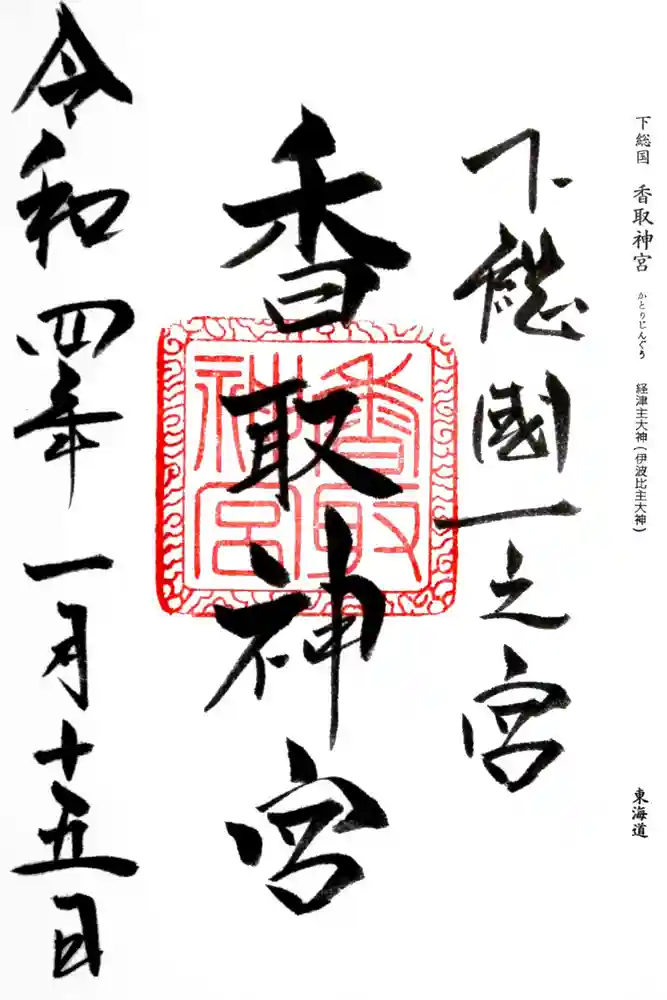 下総国 香取神宮 かとりじんぐう 経津主大神(伊波比主大神) 東海道
下総國一之宮
香取神宮
香取神宮
令和四年一月十五日